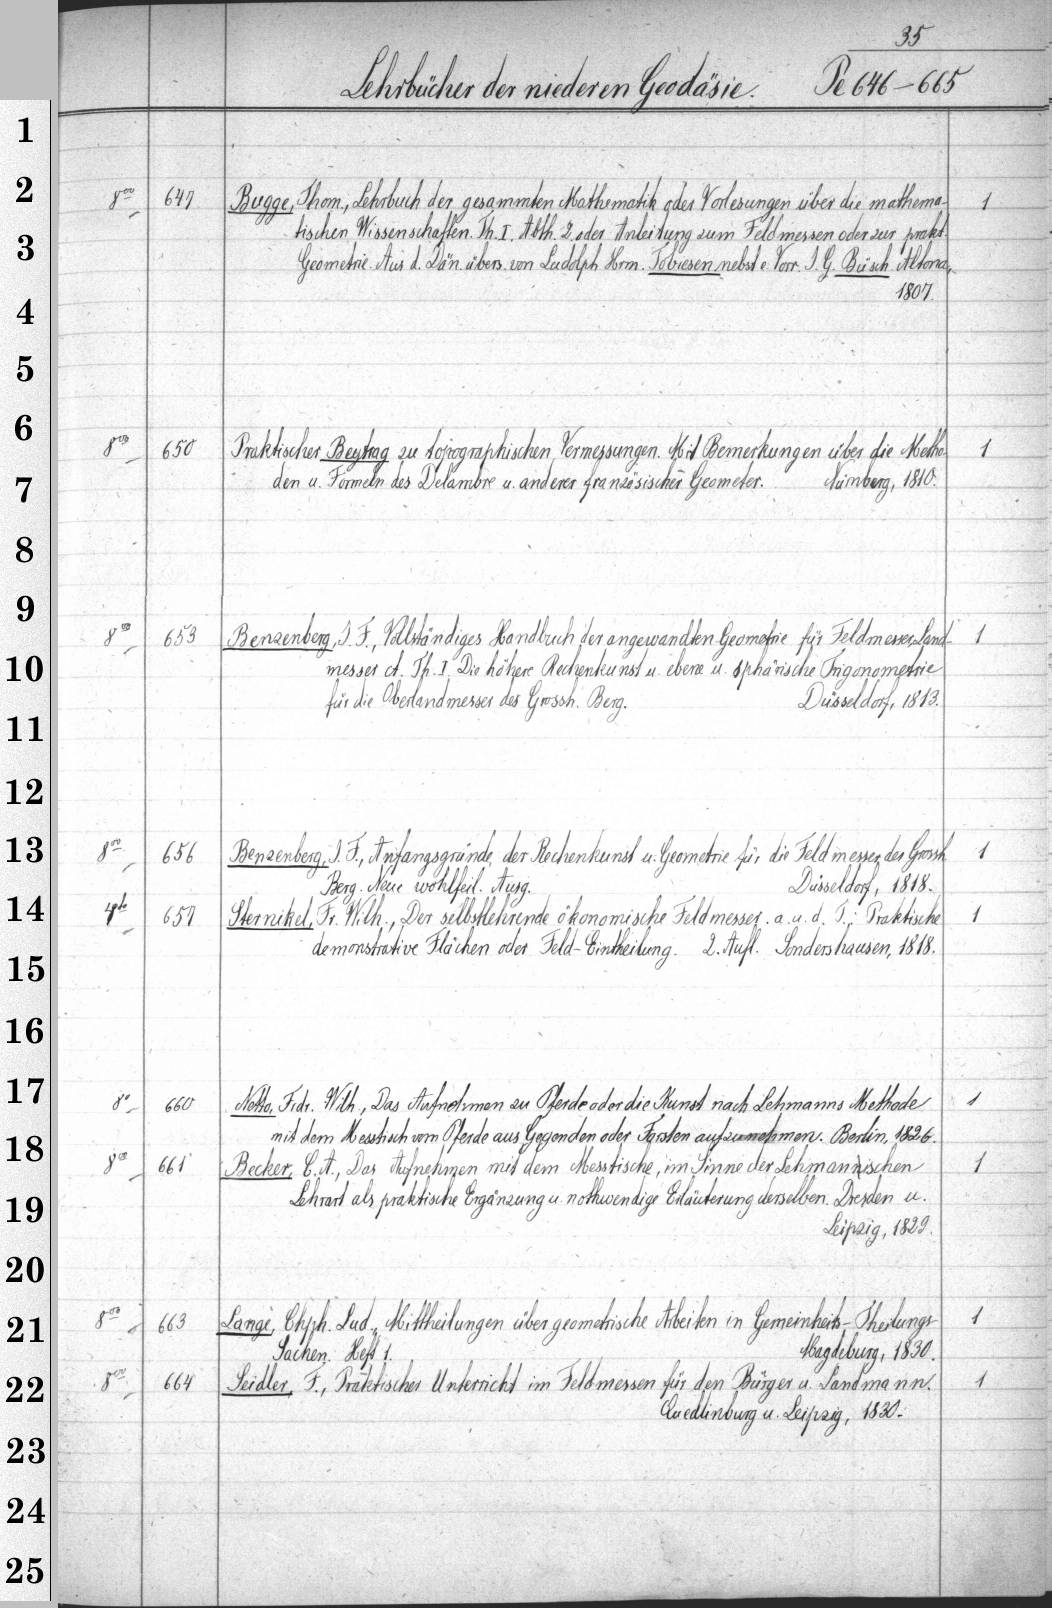 35
Lehrbücher der niederen Geodäsie. Pe 646-665
1
2
8vo 647 Bugge, Thom., Lehrbuch der gesammten Mathematik oder Vorlesungen über die mathema- 1
tischen Wissenschaften. Th. I. Abth. 2. oder Anleitung zum Feldmessen oder zur prakt.
3
Geometrie. Aus d. Dän. übers. von Ludolph Hrm. Tobiesen nebst e. Vorr. J. G. Büsch. Altona,
1807.
4
5
6
8vo 650 Praktischer Beytrag zu topographischen Vermessungen. Mit Bemerkungen über die Metho- 1
7
den u. Formeln des Delambre u. anderer französischer Geometer. Nürnberg, 1810.
8
9
8vo 653 Benzenberg, J. F., Vollständiges Handbuch der angewandten Geometrie für Feldmesser, Land- 1
10
messer ct. Th. I. Die höhere Rechenkunst u. ebene u. sphärische Trigonometrie
für die Oberlandmesser des Grossh. Berg. Düsseldorf, 1813.
11
12
13
8vo 656 Benzenberg, J. F., Anfangsgründe der Rechenkunst u. Geometrie für die Feldmesser des Grossh. 1
Berg. Neue wohlfeil. Ausg. Düsseldorf, 1818.
14
4to 657 Sternikel, Fr. Wilh., Der selbstlehrende ökonomische Feldmesser. a. u. d. T.: Praktische 1
demonstrative Flächen oder Feld-Eintheilung. 2. Aufl. Sondershausen, 1818.
15
16
17
8o 660 Netto, Frdr. Wilh., Das Aufnehmen zu Pferde oder die Kunst nach Lehmanns Methode 1
mit dem Messtisch vom Pferde aus Gegenden oder Forsten aufzunehmen. Berlin, 1826.
18
8vo 661 Becker, C. A., Das Aufnehmen mit dem Messtische, im Sinne der Lehmannischen 1
Lehrart als praktische Ergänzung u. nothwendige Erläuterung derselben. Dresden u.
19
Leipzig, 1829.
20
21
8vo 663 Lange, Chph. Lud., Mittheilungen über geometrische Arbeiten in Gemeinheits-Theilungs- 1
Sachen. Heft 1. Magdeburg, 1830.
22
8vo 664 Seidler, F., Praktischer Unterricht im Feldmessen für den Bürger u. Landmann. 1
Quedlinburg u. Leipzig, 1830.
23
24
25